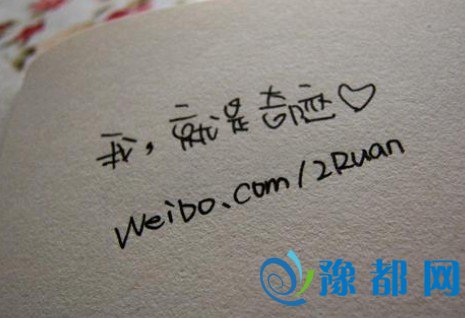 我，就是奇迹♡
Weibo.com/2Ruan
豫都网